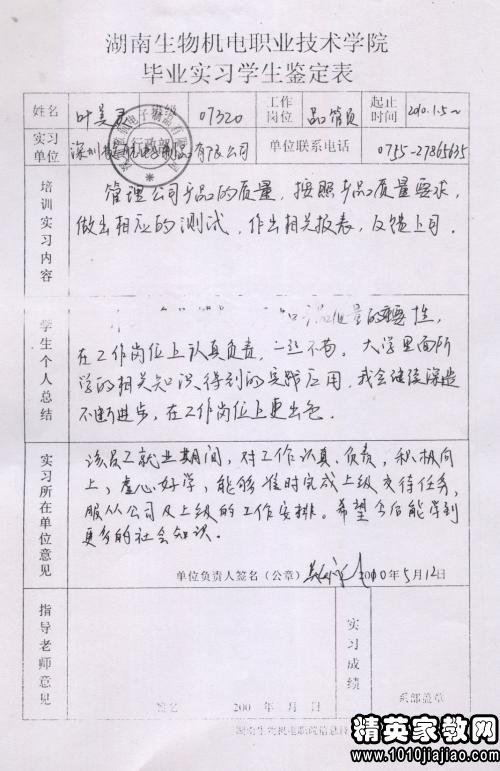 湖南生物机电职业技术学院
毕业实习学生鉴定表
姓名 叶美 班级 07320 工作岗位 品管员 起止时间 2010.1.5~
实习单位 深圳 有限公司 单位联系电话 0755-27865635
培训实习内容
管理公司产品的质量，按照产品质量要求，
做出相应的测试，作出相关报表，反馈上司.
学生个人总结
的重要性，
在工作岗位上认真负责，一丝不苟。大学里面所
学的相关知识得到的实践应用，我会继续深造
不断进步，在工作岗位上更出色.
实习所在单位意见
该员工就业期间，对工作认真、负责，积极向
上，虚心好学，能够准时完成上级交待任务，
服从公司及上级的工作安排。希望今后能学到
更多的社会知识.
单位负责人签名（公章） 2010年5月12日
指导老师意见
实习成绩
签名 200 年 月 日
系部盖章
湖南生物机电职院信息
精英家教网
www.1010jiajiao.com